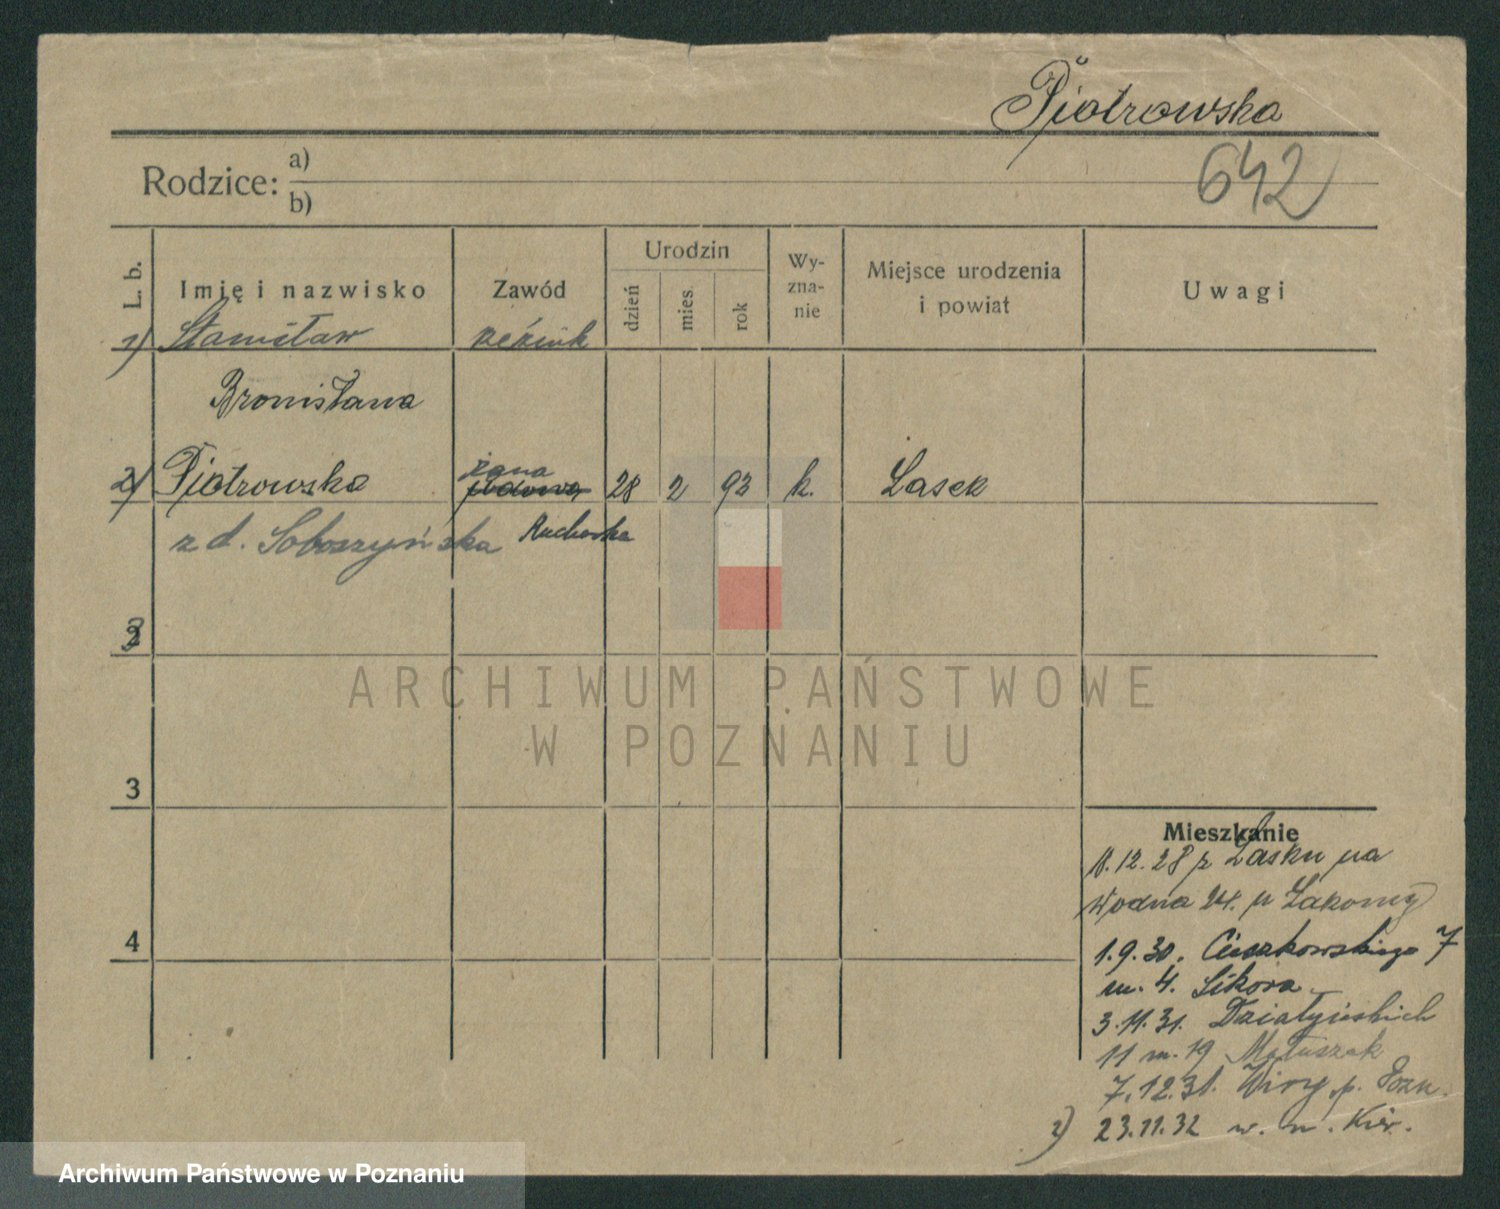 Piotrowska
642
Rodzice: a)
b)
L. b.
Imię i nazwisko
Zawód
Urodzin
dzień
mies.
rok
Wy-
zna-
nie
Miejsce urodzenia
i powiat
Uwagi
1) Stanisław rzeźnik
Bronisława
2) Piotrowska żona 28 2 93 k. Łasek
z d. Soboszyńska
2
3
4
ARCHIWUM PAŃSTWOWE
W POZNANIU
Mieszkanie
12.28 z Łasku na
Wodna 24.
1.9.30. Cieszkowskiego 7
m. 4. Sikora
3.11.31. Działyńskich
11 m. 19 Matuszak
7.12.31. Wiry p. Pozn.
2) 23.11.32 w. m.
Archiwum Państwowe w Poznaniu